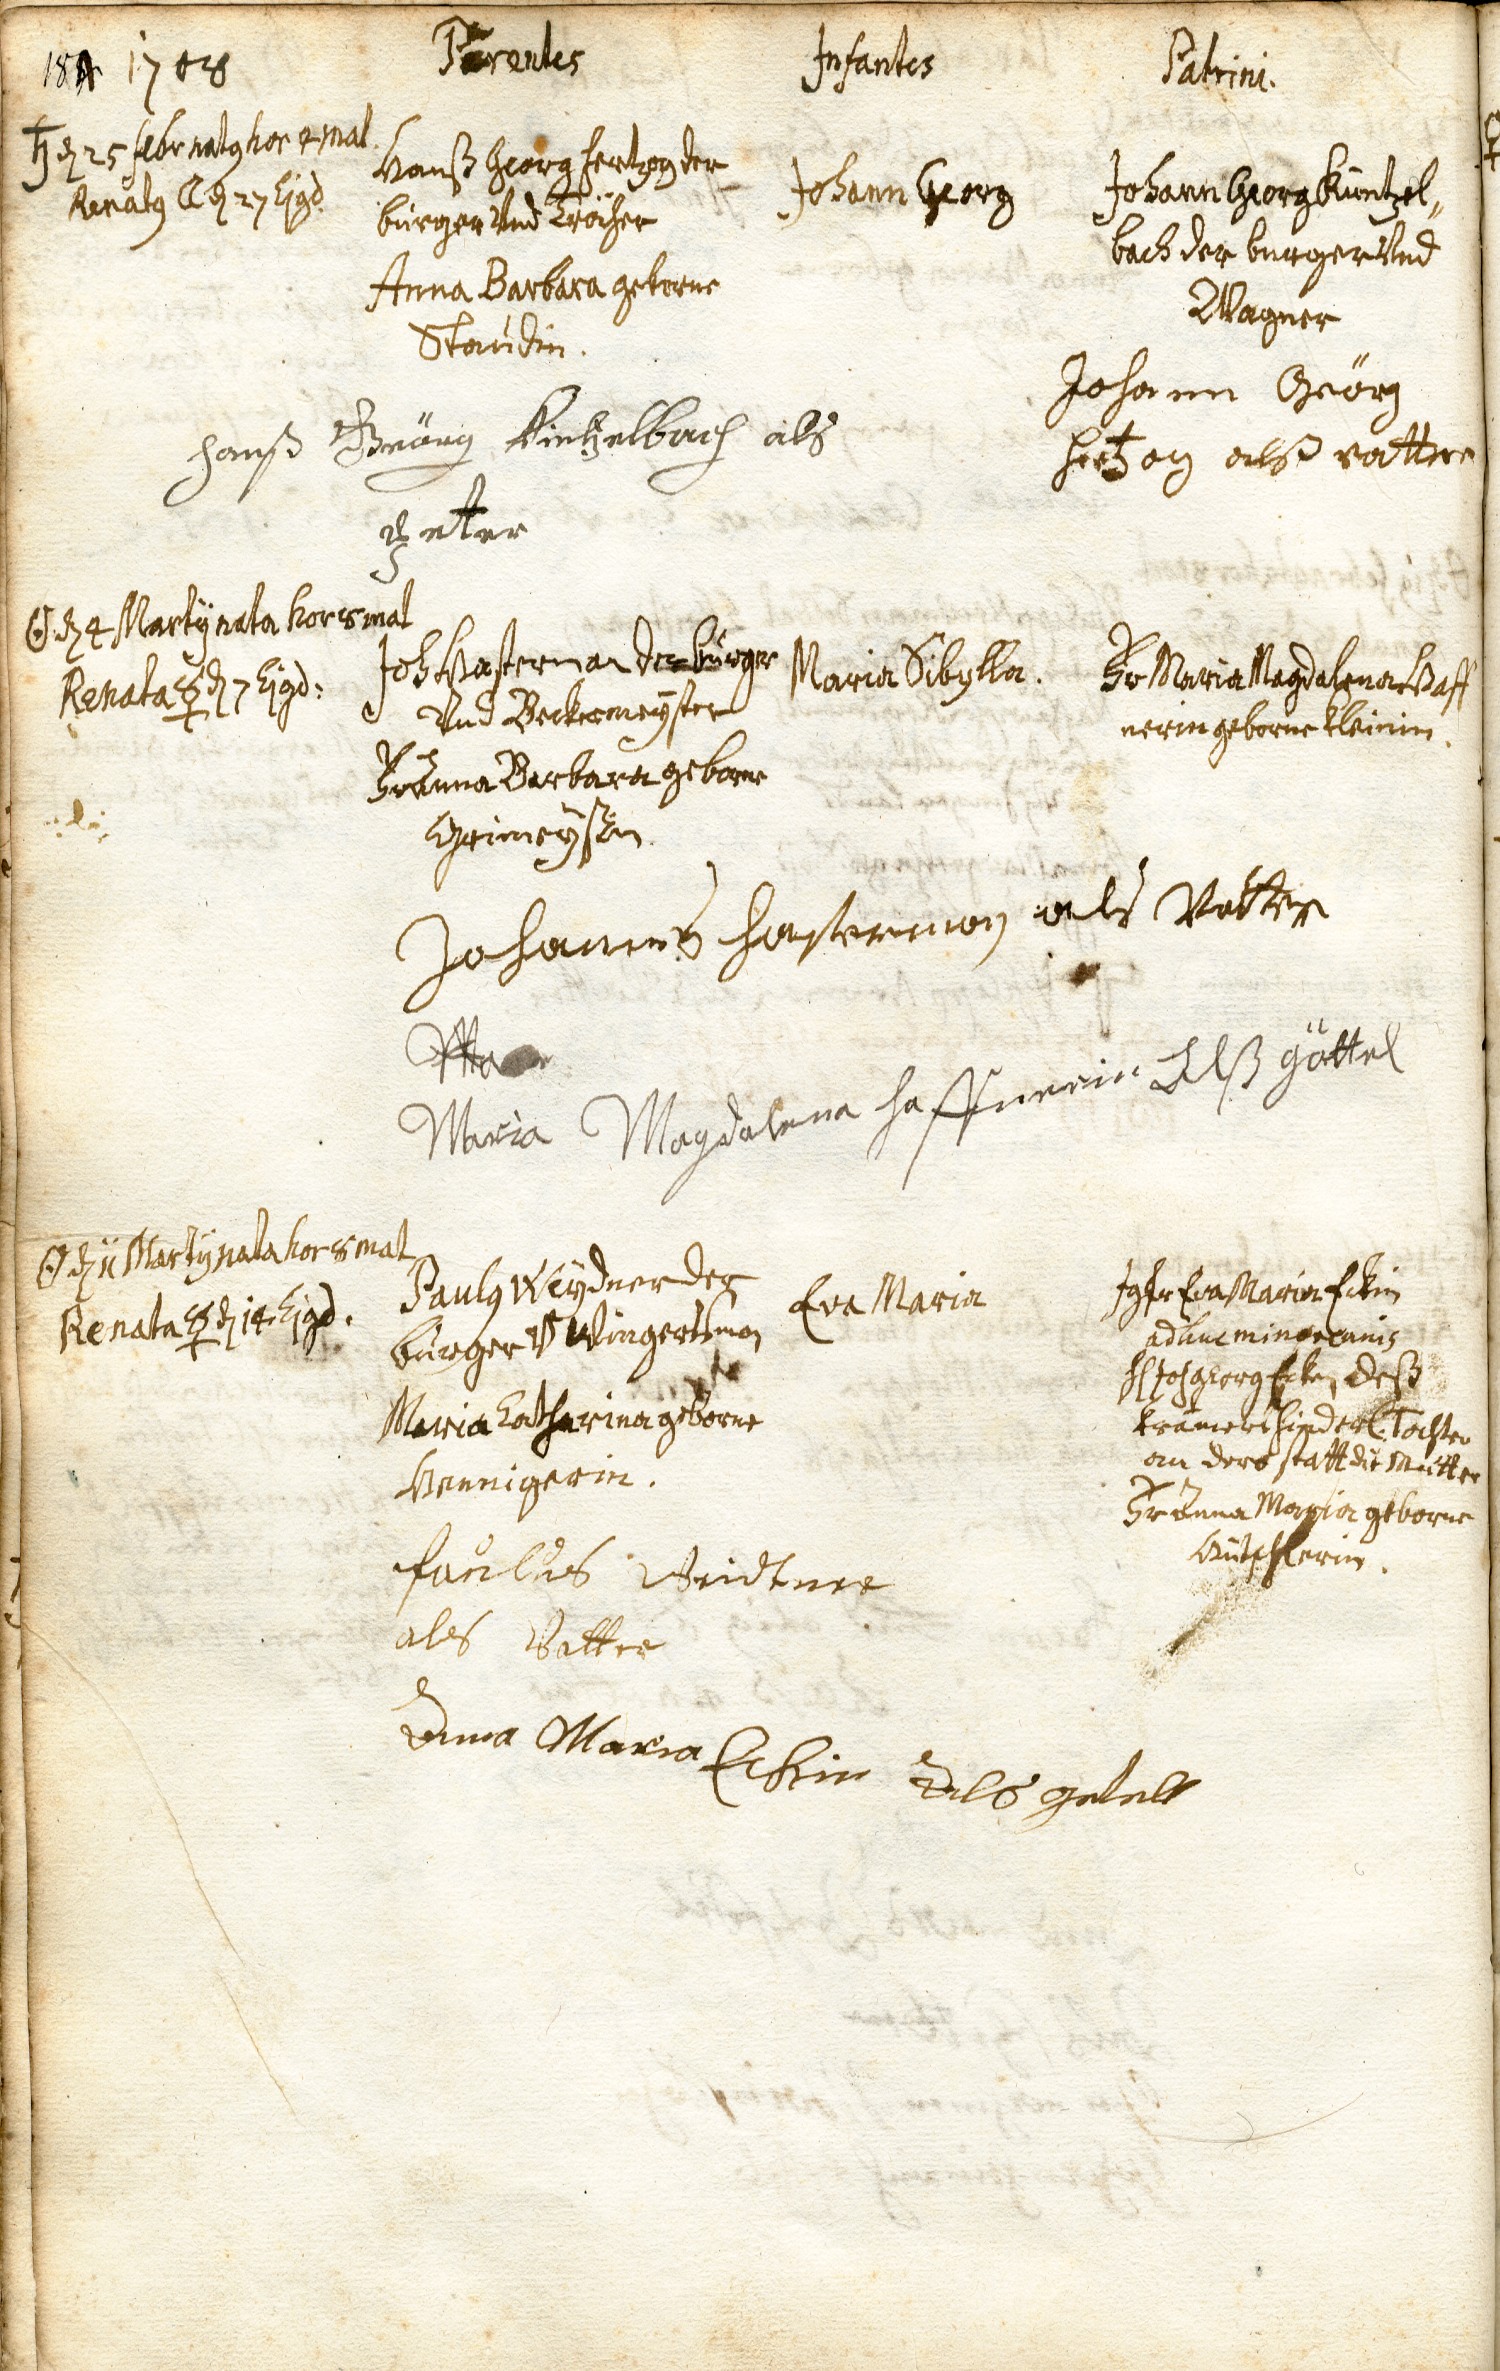 184 1708 Parentes Infantes Patrini.
♄ d 25 febr natg hor 4 mat
Renatg ☾ d 27 Ejgd
Hanß Georg Hertzog der
burger Und Tröscher
Anna Barbara geborne
Staudin.
Johann Georg
Johann Georg Küntzel„
bach der burger Und
Wagner
Johann Geörg
Hertzog alß vatter
Hanß Geörg Kintzelbach als
Petter
☉ d 4 Martij nata hor 8 mat
Renata ☿ d 7 Ejgd:
Joh Hasterman der burger
Und Beckermeyster
Fr Anna Barbara geborne
Maria Sibylla.
Fr Maria Magdalena Haff
nerin geborne Kleinin.
Johannes Hasterman als Vatter
Maria Magdalena Haffnerin Alß göttel
☉ d 11 Martij nata hor 8 mat
Renata ☿ d 14 Ejgd.
Paulg Weydner der
burger V Wingertsman
Maria Catharina geborne
Hennigerin.
Eva Maria
Jgfr Eva Maria Eckin
adhuc minorennis
H Joh Georg Ecken deß
Tochter
an dero statt die Mutter
Fr Anna Maria geborne
Paulus Weidtner
als Vatter
Anna Maria Eckin Als getell